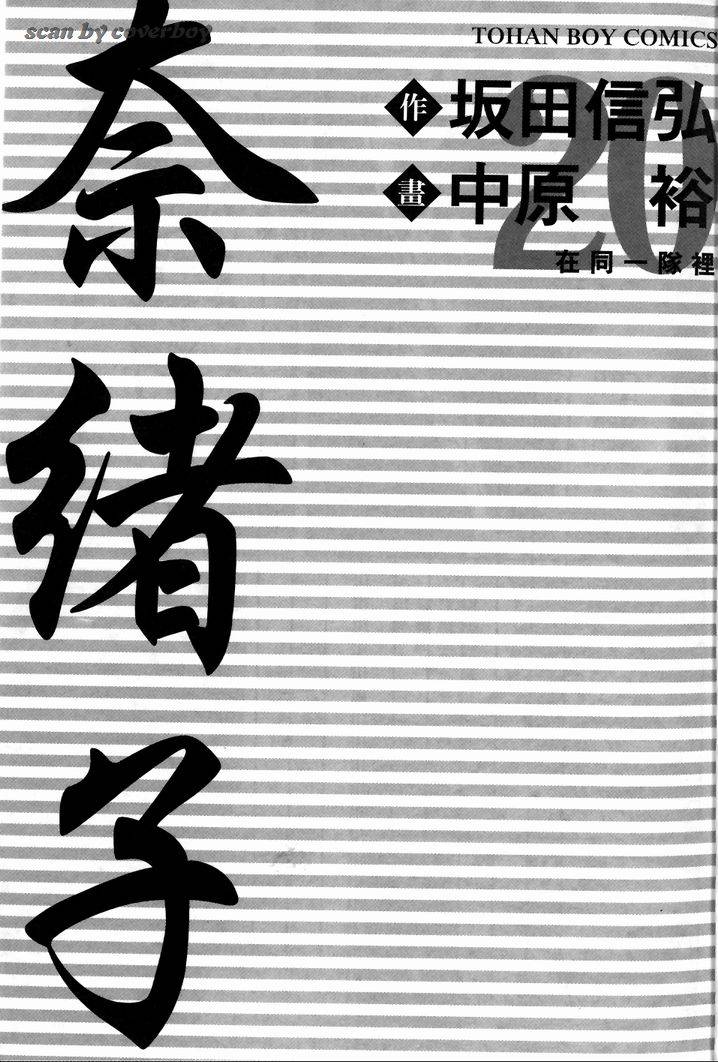 scan by coverboy
TOHAN BOY COMICS
20
作 坂田信弘
畫 中原 裕
在同一隊裡
奈緒子